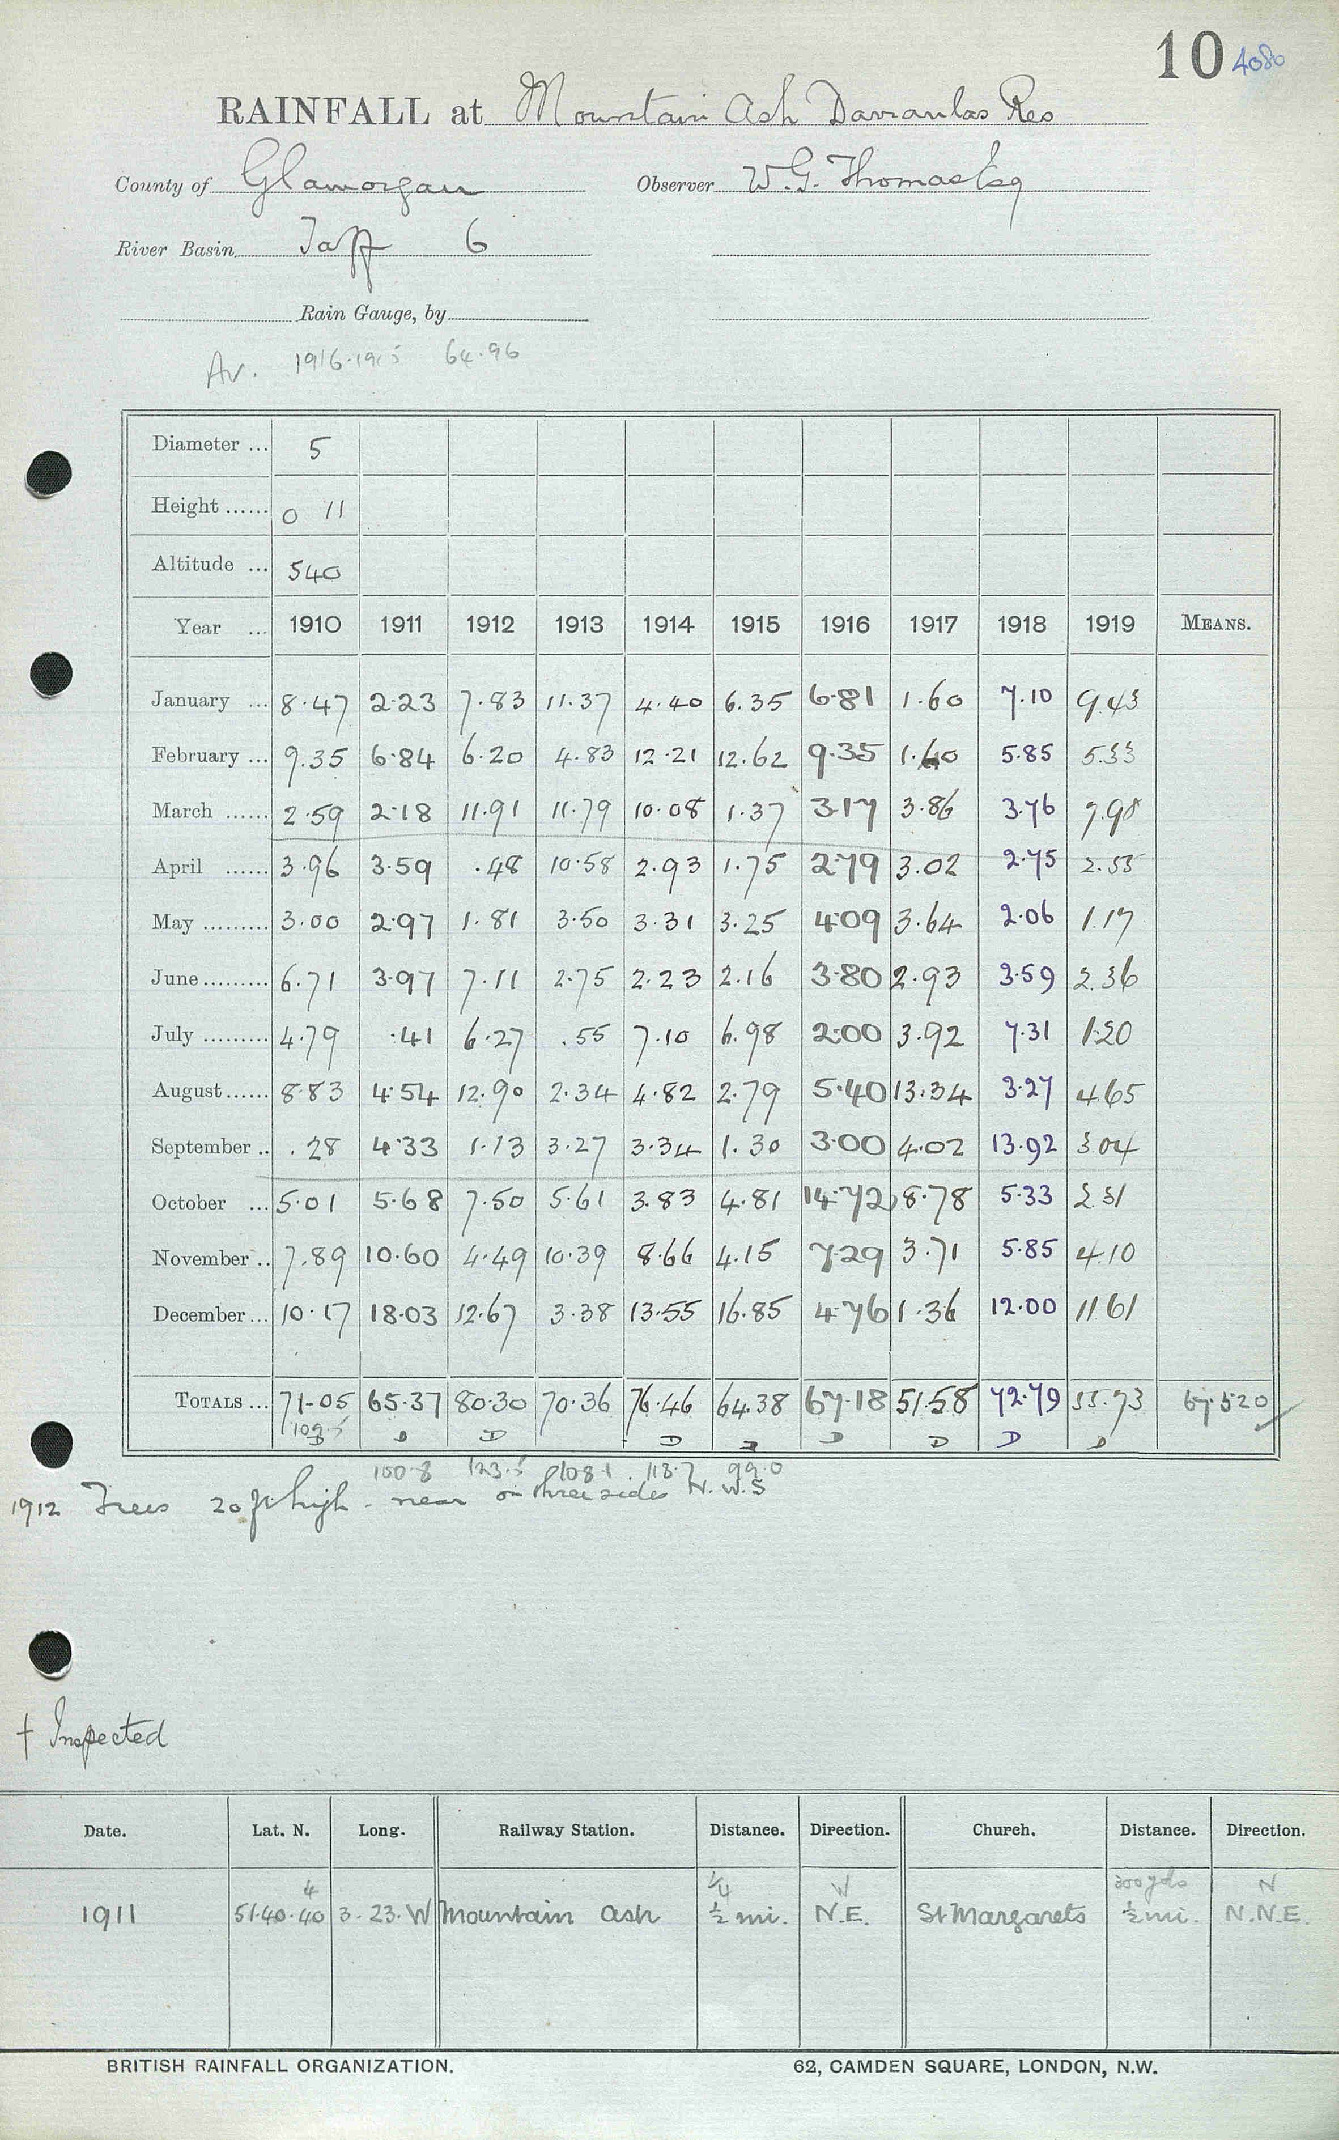 10 4080
RAINFALL at Mountain Ash Darranlas Res
County of Glamorgan Observer W.G. Thomas Esq
River Basin Taff 6
Rain Gauge, by
Av. 1916-1915 64.96
Diameter ... 5
Height ...... 0 11
Altitude ... 540
Year ... 1910 1911 1912 1913 1914 1915 1916 1917 1918 1919 MEANS.
January ... 8.47 2.23 7.83 11.37 4.40 6.35 6.81 1.60 7.10 9.43
February ... 9.35 6.84 6.20 4.83 12.21 12.62 9.35 1.40 5.85 5.33
March ...... 2.59 2.18 11.91 11.79 10.08 1.37 3.17 3.86 3.76 7.98
April ...... 3.96 3.59 .48 10.58 2.93 1.75 2.79 3.02 2.75 2.55
May ......... 3.00 2.97 1.81 3.50 3.31 3.25 4.09 3.64 2.06 1.17
June ......... 6.71 3.97 7.11 2.75 2.23 2.16 3.80 2.93 3.59 2.36
July ......... 4.79 .41 6.27 .55 7.10 6.98 2.00 3.92 7.31 1.20
August ...... 8.83 4.54 12.90 2.34 4.82 2.79 5.40 13.34 3.27 4.65
September .. .28 4.33 1.13 3.27 3.34 1.30 3.00 4.02 13.92 3.04
October ... 5.01 5.68 7.50 5.61 3.83 4.81 14.72 8.78 5.33 2.31
November .. 7.89 10.60 4.49 10.39 8.66 4.15 7.29 3.71 5.85 4.10
December ... 10.17 18.03 12.67 3.38 13.55 16.85 4.76 1.36 12.00 11.61
TOTALS ... 71.05 65.37 80.30 70.36 76.46 64.38 67.18 51.58 72.79 55.73 67.520
109.5 D D D D D D D D
100.8 123.5 108.1 113.7 99.0
1912 Trees 20 ft high - near on three sides N.W.S
† Inspected
Date. Lat. N. Long. Railway Station. Distance. Direction. Church. Distance. Direction.
4 ¼ W 300 yds N
1911 51.40.40 3.23.W Mountain Ash ½ mi. N.E. St Margarets ½ mi. N.N.E.
BRITISH RAINFALL ORGANIZATION. 62, CAMDEN SQUARE, LONDON, N.W.